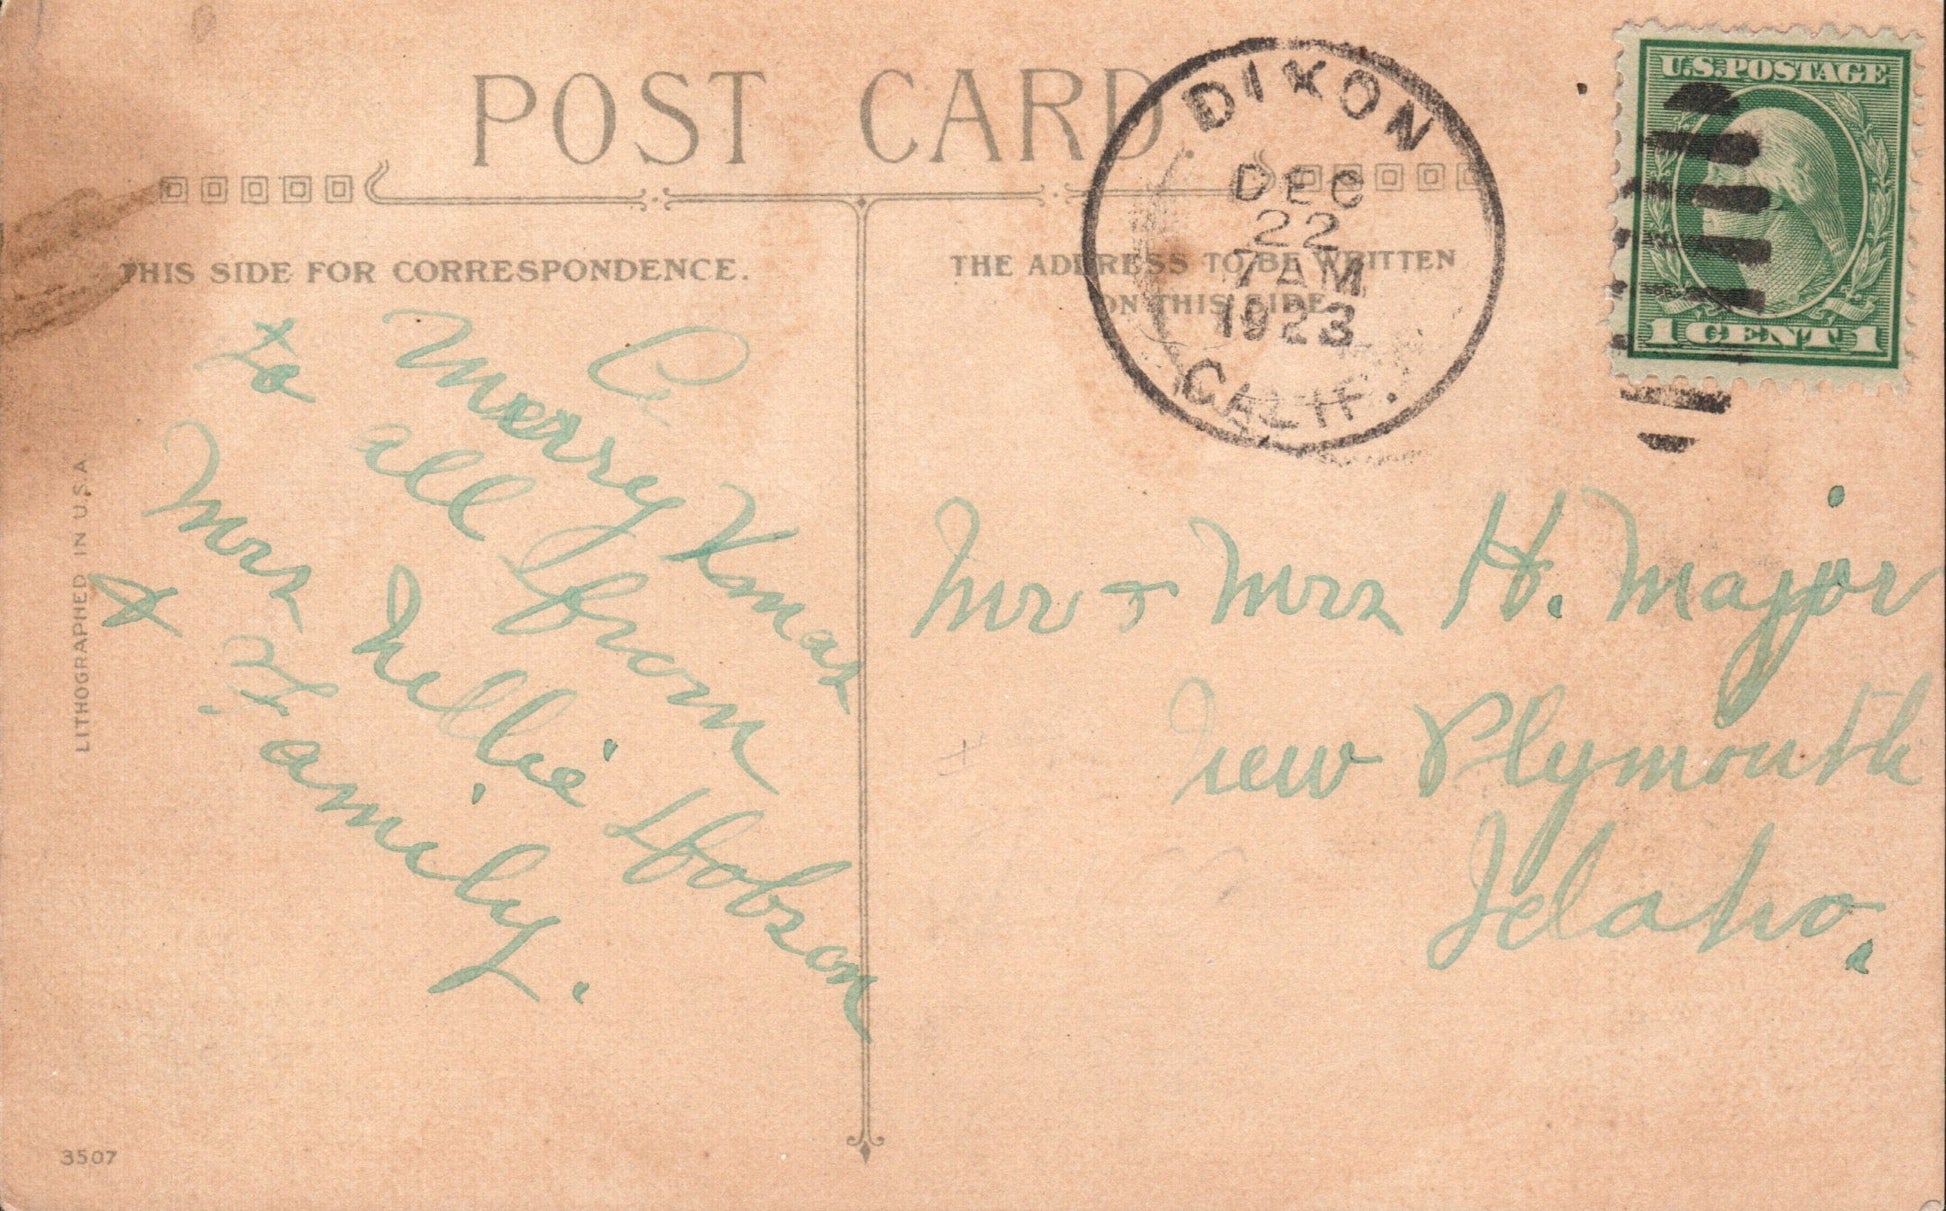 POST CARD
THIS SIDE FOR CORRESPONDENCE.
THE ADDRESS TO BE WRITTEN
ON THIS SIDE
DIXON
DEC
22
7 AM
1923
CALIF.
U.S. POSTAGE
1 CENT 1
A
Merry Xmas
to all from
Mrs Nellie Hobson
& Family.
Mr & Mrs H. Major
New Plymouth
Idaho.
LITHOGRAPHED IN U.S.A.
3507